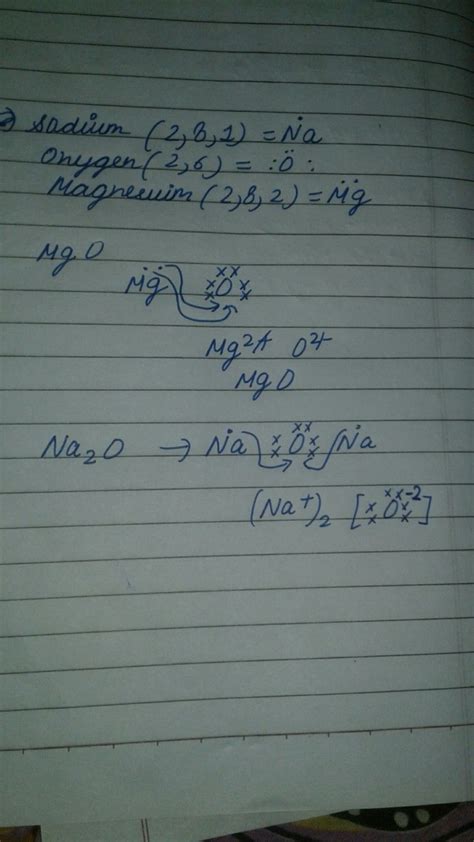 Sodium (2,8,1) = Ṅa
Oxygen (2,6) = :Ö:
Magnesium (2,8,2) = M̈g
MgO
M̈g O
Mg2+ O2+
MgO
Na2O → Ṅa O Ṅa
(Na+)2 [O-2]